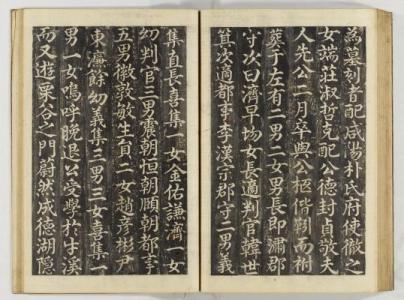 為墓刻者配咸陽朴氏府使徽之
女端莊淑哲克配公德封貞敬夫
人先公二月卒與公柩偕靷而祔
葬于左有二男二女男長即濔郡
守次曰濟早歿女長適判官韓世
箕次適都事李漢宗郡守二男義
集直長喜集一女金佑謙濟一女
幼判官三男震朝恒朝頤朝都事
五男徵敦敏生員一女趙彦彬尹
東廉餘幼義集三男三女喜集一
男一女嗚呼晩退公學學於牛溪
而又遊栗谷之門蔚然成德湖隠